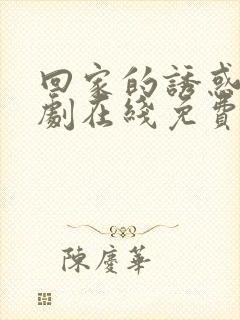 回家的誘惑
劇在綫免費
陳慶華